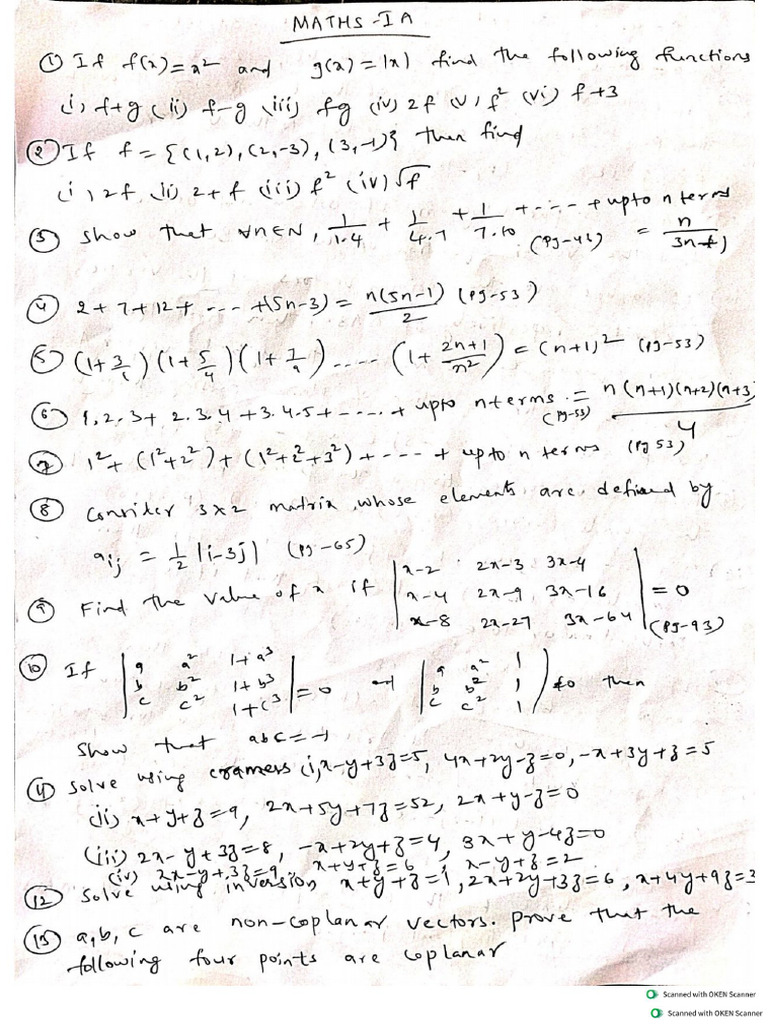 MATHS-IA
① If f(x)=x² and g(x)=|x| find the following functions
(i) f+g (ii) f-g (iii) fg (iv) 2f (v) f² (vi) f+3
② If f = {(1,2),(2,-3),(3,-1)} then find
(i) 2f (ii) 2+f (iii) f² (iv) √f
③ Show that ∀n∈N, 1/1.4 + 1/4.7 + 1/7.10 +---- + upto n terms = n/3n+1
④ 2+7+12+ ---- +(5n-3) = n(5n-1)/2 (pg-53)
⑤ (1+3/1)(1+5/4)(1+7/9)---- (1+ 2n+1/n²) = (n+1)² (pg-53)
⑥ 1.2.3+ 2.3.4 +3.4.5+ ---- + upto n terms = n(n+1)(n+2)(n+3)/4 (pg-53)
⑦ 1²+ (1²+2²)+(1²+2²+3²)+---- + upto n terms (pg 53)
⑧ Consider 3x2 matrix, whose elements are defined by
aij = 1/2 |i-3j| (pg-65)
⑨ Find the value of x if |x-2 2x-3 3x-4|
|x-4 2x-9 3x-16| = 0
|x-8 2x-27 3x-64| (pg-93)
⑩ If |a a² 1+a³| |a a² 1|
|b b² 1+b³| =0 and |b b² 1| ≠0 then
|c c² 1+c³| |c c² 1|
Show that abc=-1
⑪ Solve using cramers (i) x-y+3z=5, 4x+2y-z=0, -x+3y+z=5
(ii) x+y+z=9, 2x+5y+7z=52, 2x+y-z=0
(iii) 2x-y+3z=8, -x+2y+z=4, 3x+y-4z=0
(iv) 2x-y+3z=9, x+y+z=6, x-y+z=2
⑫ Solve using inversion x+y+z=1, 2x+2y+3z=6, x+4y+9z=3
⑬ a,b,c are non-coplanar vectors. Prove that the
following four points are coplanar
Scanned with OKEN Scanner
Scanned with OKEN Scanner